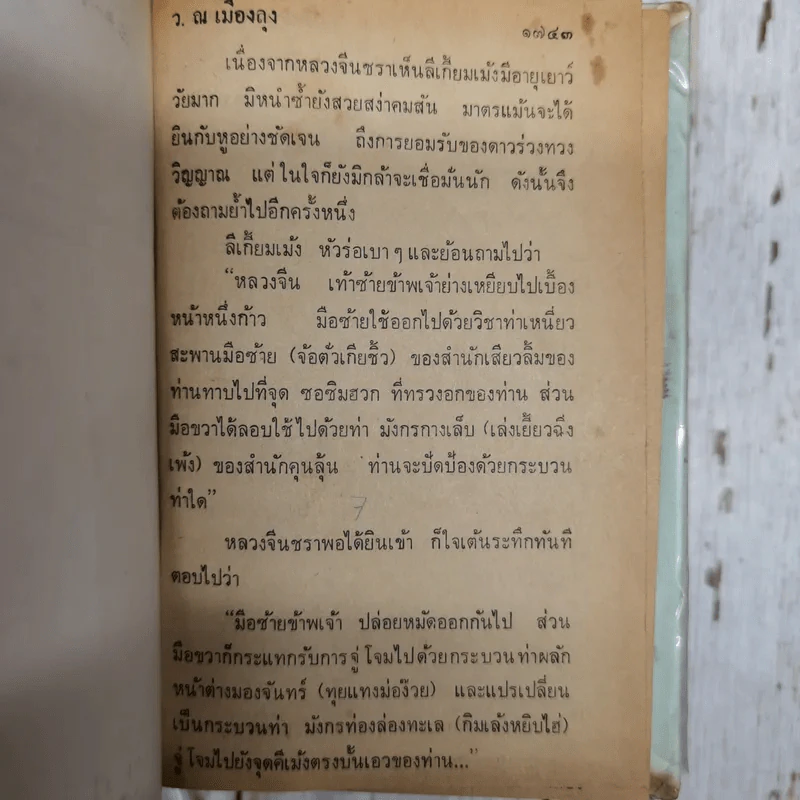 ว. ณ เมืองลุง
๑๗๔๓
เนื่องจากหลวงจีนชราเห็นลีเกี้ยมเม้งมีอายุเยาว์
วัยมาก มิหนำซ้ำยังสวยสง่าคมสัน มาตรแม้นจะได้
ยินกับหูอย่างชัดเจน ถึงการยอมรับของดาวร่วงทวง
วิญญาณ แต่ ในใจก็ยังมิกล้าจะเชื่อมั่นนัก ดังนั้นจึง
ต้องถามย้ำไปอีกครั้งหนึ่ง
ลีเกี้ยมเม้ง หัวร่อเบา ๆ และย้อนถามไปว่า
“หลวงจีน เท้าซ้ายข้าพเจ้าย่างเหยียบไปเบื้อง
หน้าหนึ่งก้าว มือซ้ายใช้ออกไปด้วยวิชาท่าเหนี่ยว
สะพานมือซ้าย (จ้อตั่วเกียชิ้ว) ของสำนักเสียวลิ้มของ
ท่านทาบไปที่จุด ซอซิมฮวก ที่ทรวงอกของท่าน ส่วน
มือขวาได้ลอบใช้ ไปด้วยท่า มังกรกางเล็บ (เล่งเยี้ยวฉิ่ง
เพ้ง) ของสำนักคุนลุ้น ท่านจะปัดป้องด้วยกระบวน
ท่าใด”
หลวงจีนชราพอได้ยินเข้า ก็ใจเต้นระทึกทันที
ตอบไปว่า
“มือซ้ายข้าพเจ้า ปล่อยหมัดออกกันไป ส่วน
มือขวาก็กระแทกรับการ จู่ โจมไปด้วยกระบวน ท่าผลัก
หน้าต่างมองจันทร์ (ทุยแทงม่อง๊วย) และแปรเปลี่ยน
เป็นกระบวนท่า มังกรท่องล่องทะเล (กิมเล้งหยิบไฮ่)
จู่ โจมไปยังจุดคีเม้งตรงบั้นเอวของท่าน...”